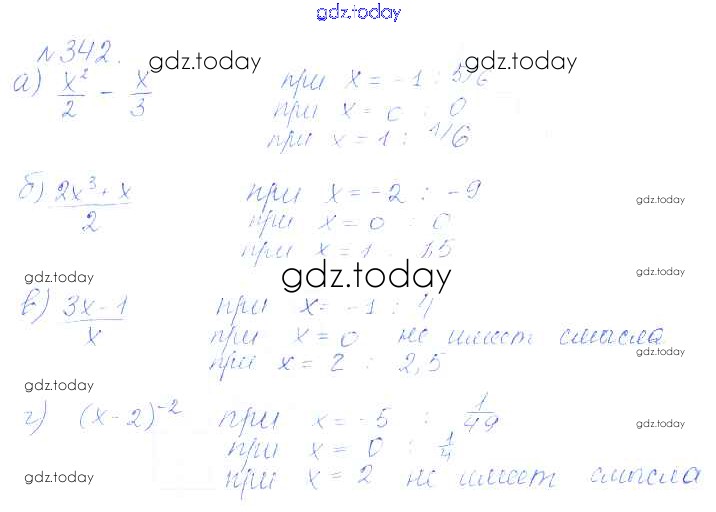 gdz.today
№342. gdz.today gdz.today
а) x²/2 - x/3 при x = -1 : 5/6
при x = 0 : 0
при x = 1 : 1/6
б) (2x³ + x)/2 при x = -2 : -9
gdz.today
при x = 0 : 0
при x = 1 : 1,5
gdz.today gdz.today gdz.today
в) (3x - 1)/x при x = -1 : 4
при x = 0 не имеет смысла
gdz.today
при x = 2 : 2,5
gdz.today
г) (x - 2)⁻² при x = -5 : 1/49
gdz.today
при x = 0 : 1/4
при x = 2 не имеет смысла
gdz.today gdz.today